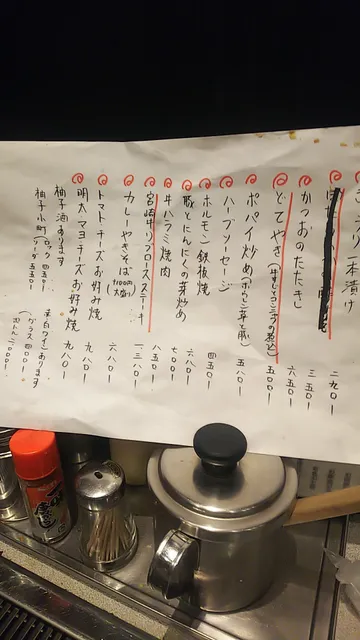 きゅうり一本漬け 二九〇ー
三五〇ー
かつおのたたき 六五〇ー
どてやき(牛すじとコンニャクの煮込) 五〇〇ー
ポパイ炒め(ホウレン草と豚) 五八〇ー
ハーブソーセージ 四五〇ー
ホルモン鉄板焼 六八〇ー
豚とにんにくの芽炒め 七〇〇ー
牛ハラミ焼肉 八五〇ー
宮崎牛リブロースステーキ 一三八〇ー
カレーやきそば(+100円大盛) 六八〇ー
トマトチーズお好み焼 九八〇ー
明太マヨチーズお好み焼 九八〇ー
柚子酒あります
柚子小町(ロック四五〇ー ソーダ五五〇ー
赤白ワインあります
(グラス四〇〇ー ボトル二〇〇〇ー